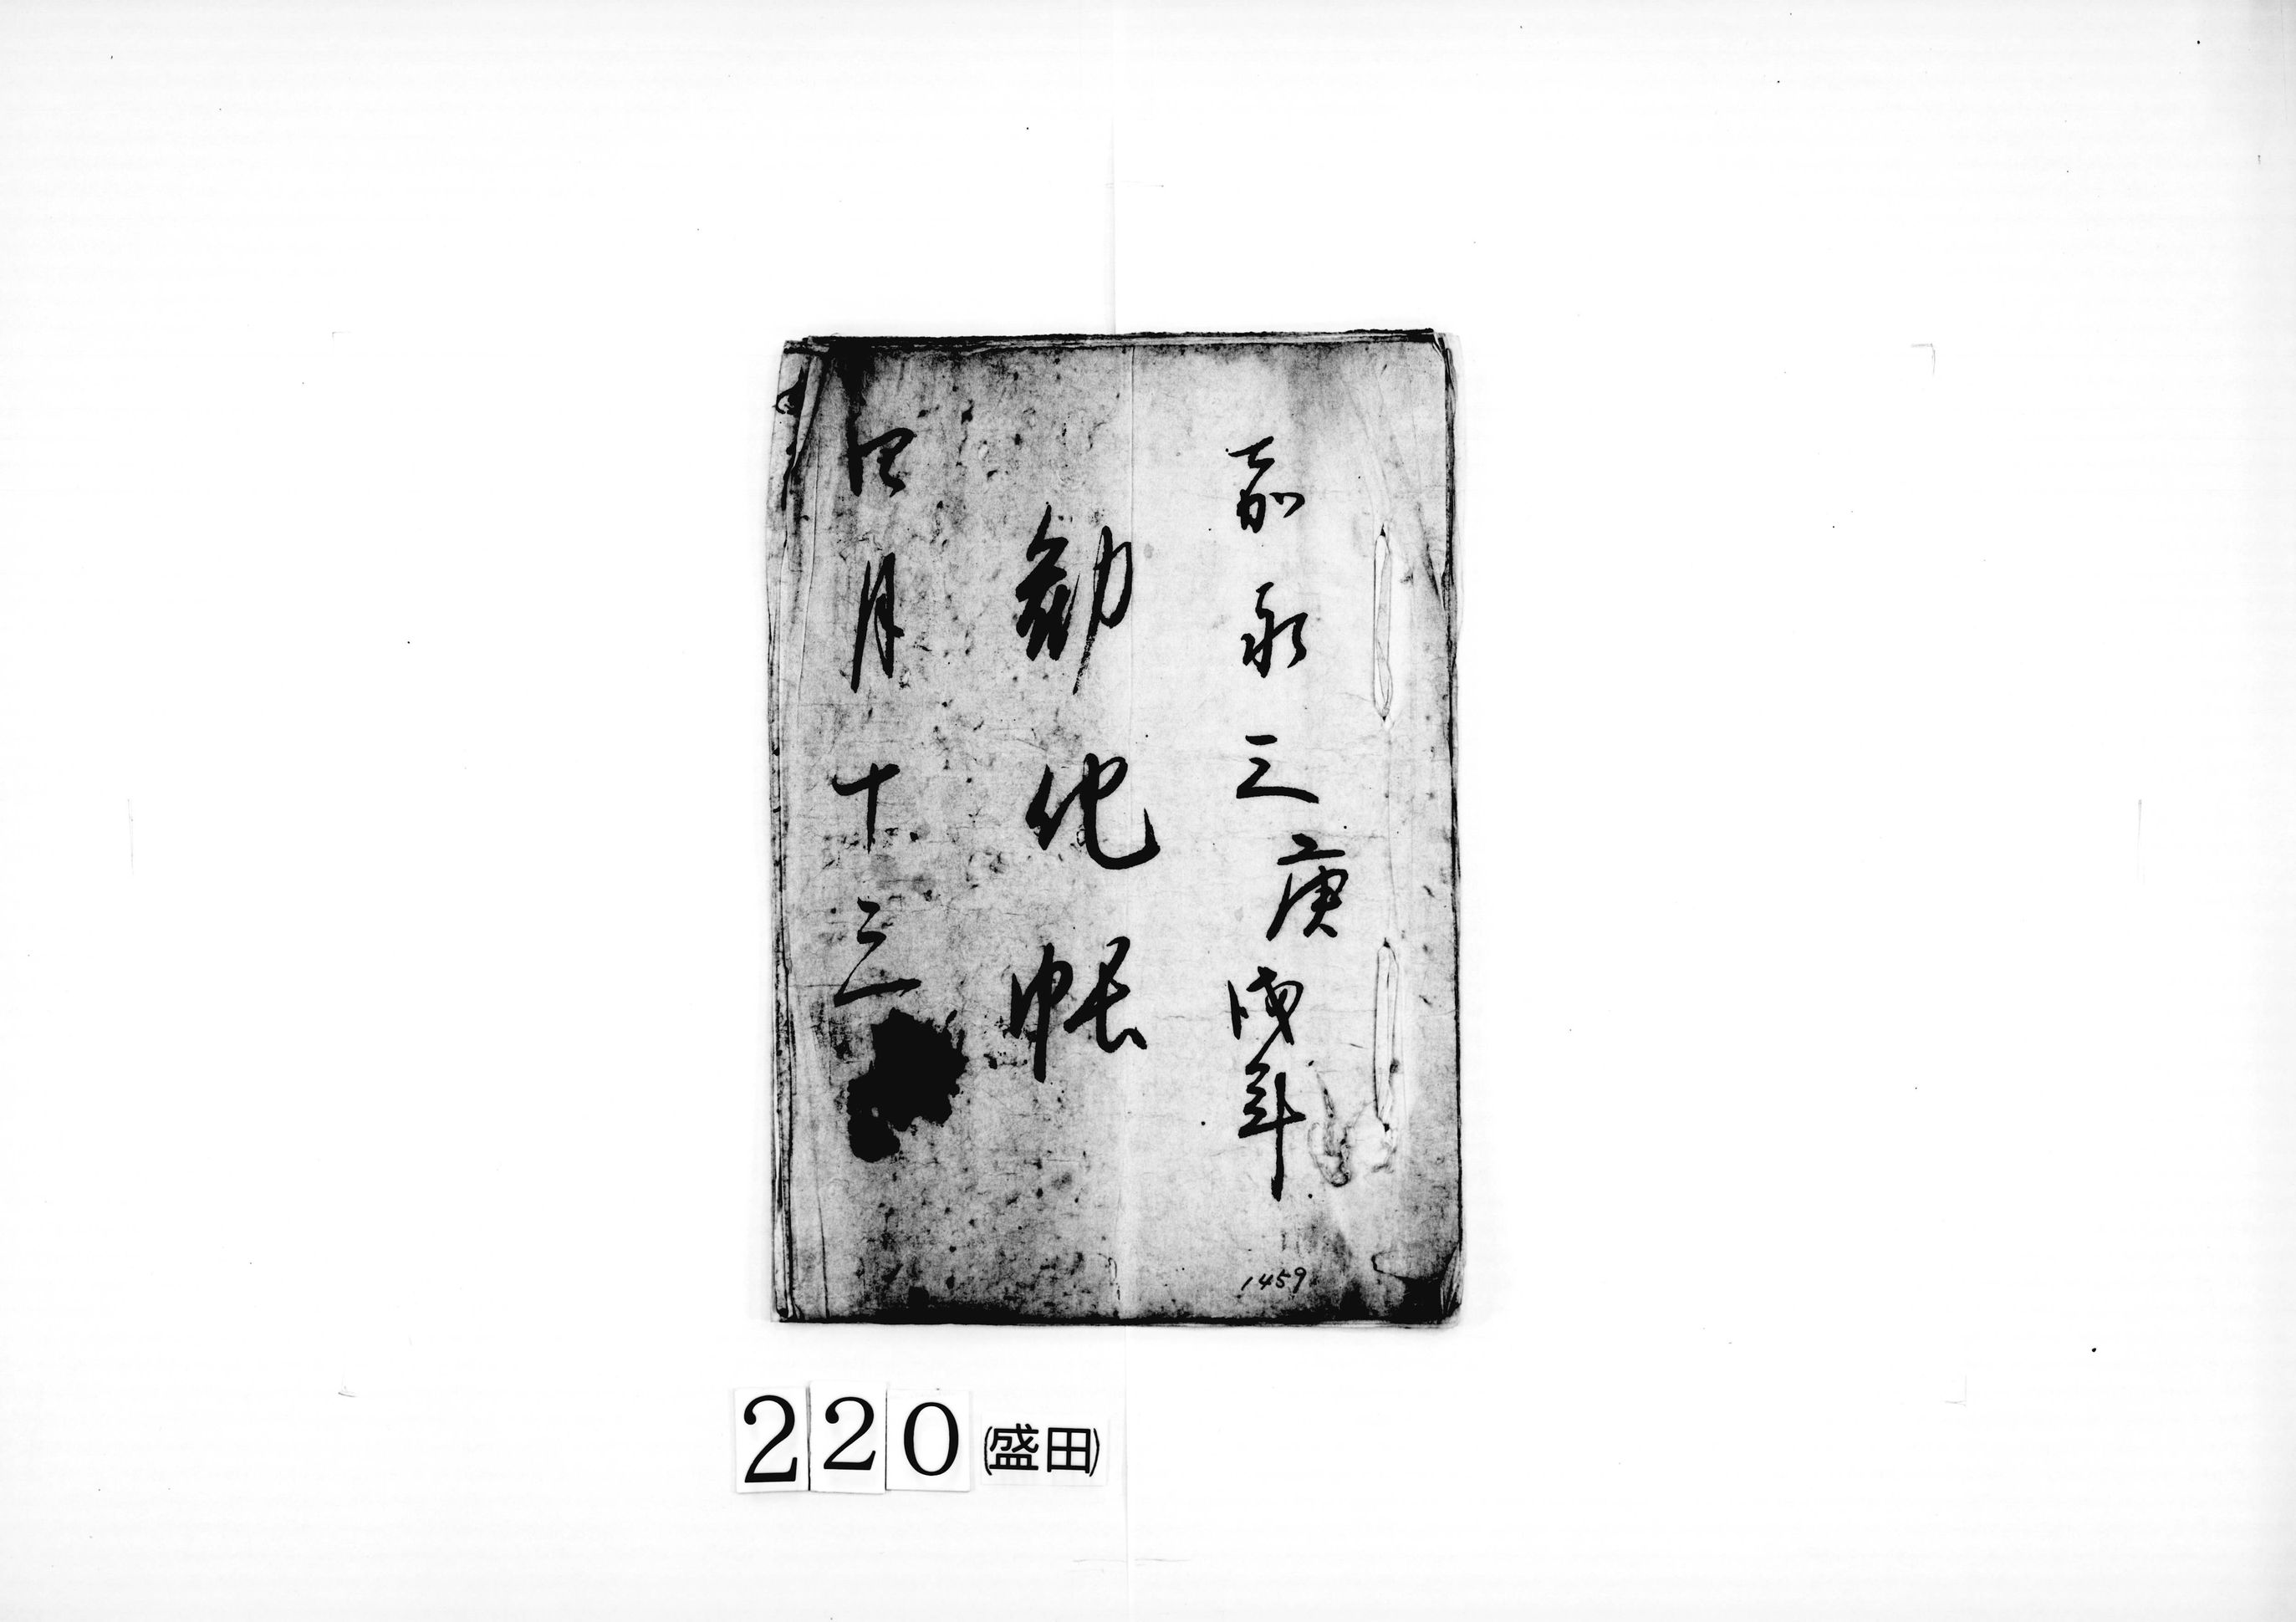 嘉永三庚戌年
勧化帳
四月十三
1459
220 (盛田)